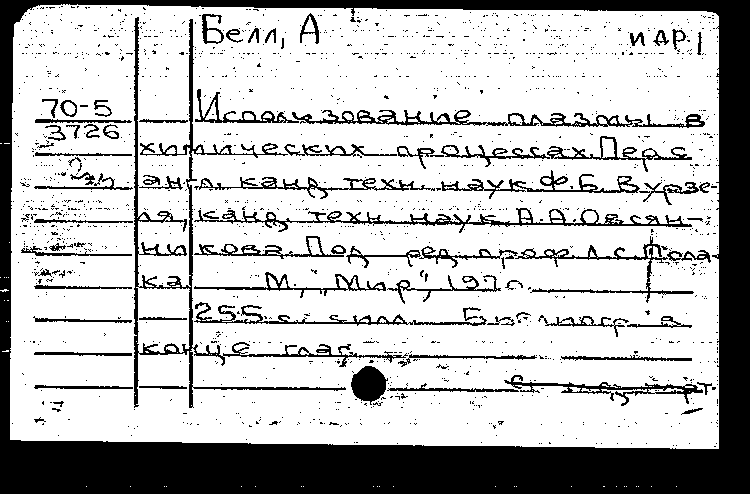 Белл, А и др.
70-5
3726
2 экз
Использование плазмы в
химических процессах. Пер с
англ. канд. техн. наук Ф.Б. Вурзе-
ля, канд. техн. наук А.А. Овсян-
никова. Под ред. проф. Л.С. Пола-
ка. М., "Мир", 1970.
255 с. с илл. Библиогр в
конце глав